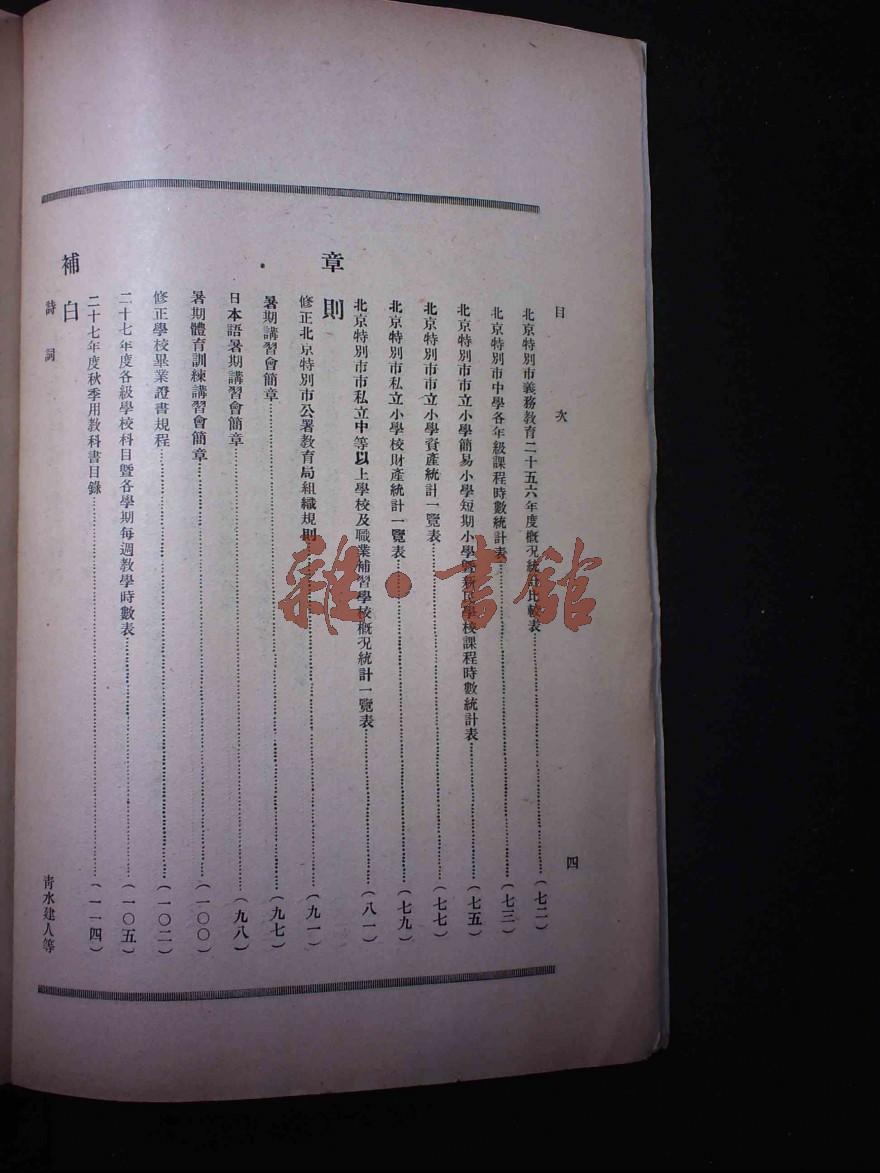 目次 四
北京特別市義務教育二十五六年度概況統計比較表(七二)
北京特別市中學各年級課程時數統計表(七三)
北京特別市市立小學簡易小學短期小學暨新民學校課程時數統計表(七五)
北京特別市市立小學資產統計一覽表(七七)
北京特別市私立小學校財產統計一覽表(七九)
北京特別市市私立中等以上學校及職業補習學校概況統計一覽表(八一)
章則
修正北京特別市公署教育局組織規則(九一)
暑期講習會簡章(九七)
日本語暑期講習會簡章(九八)
暑期體育訓練講習會簡章(一〇〇)
修正學校畢業證書規程(一〇二)
二十七年度各級學校科目暨各學期每週教學時數表(一〇五)
二十七年度秋季用教科書目錄(一一四)
補白
詩詞 青水建人等
雜·書館